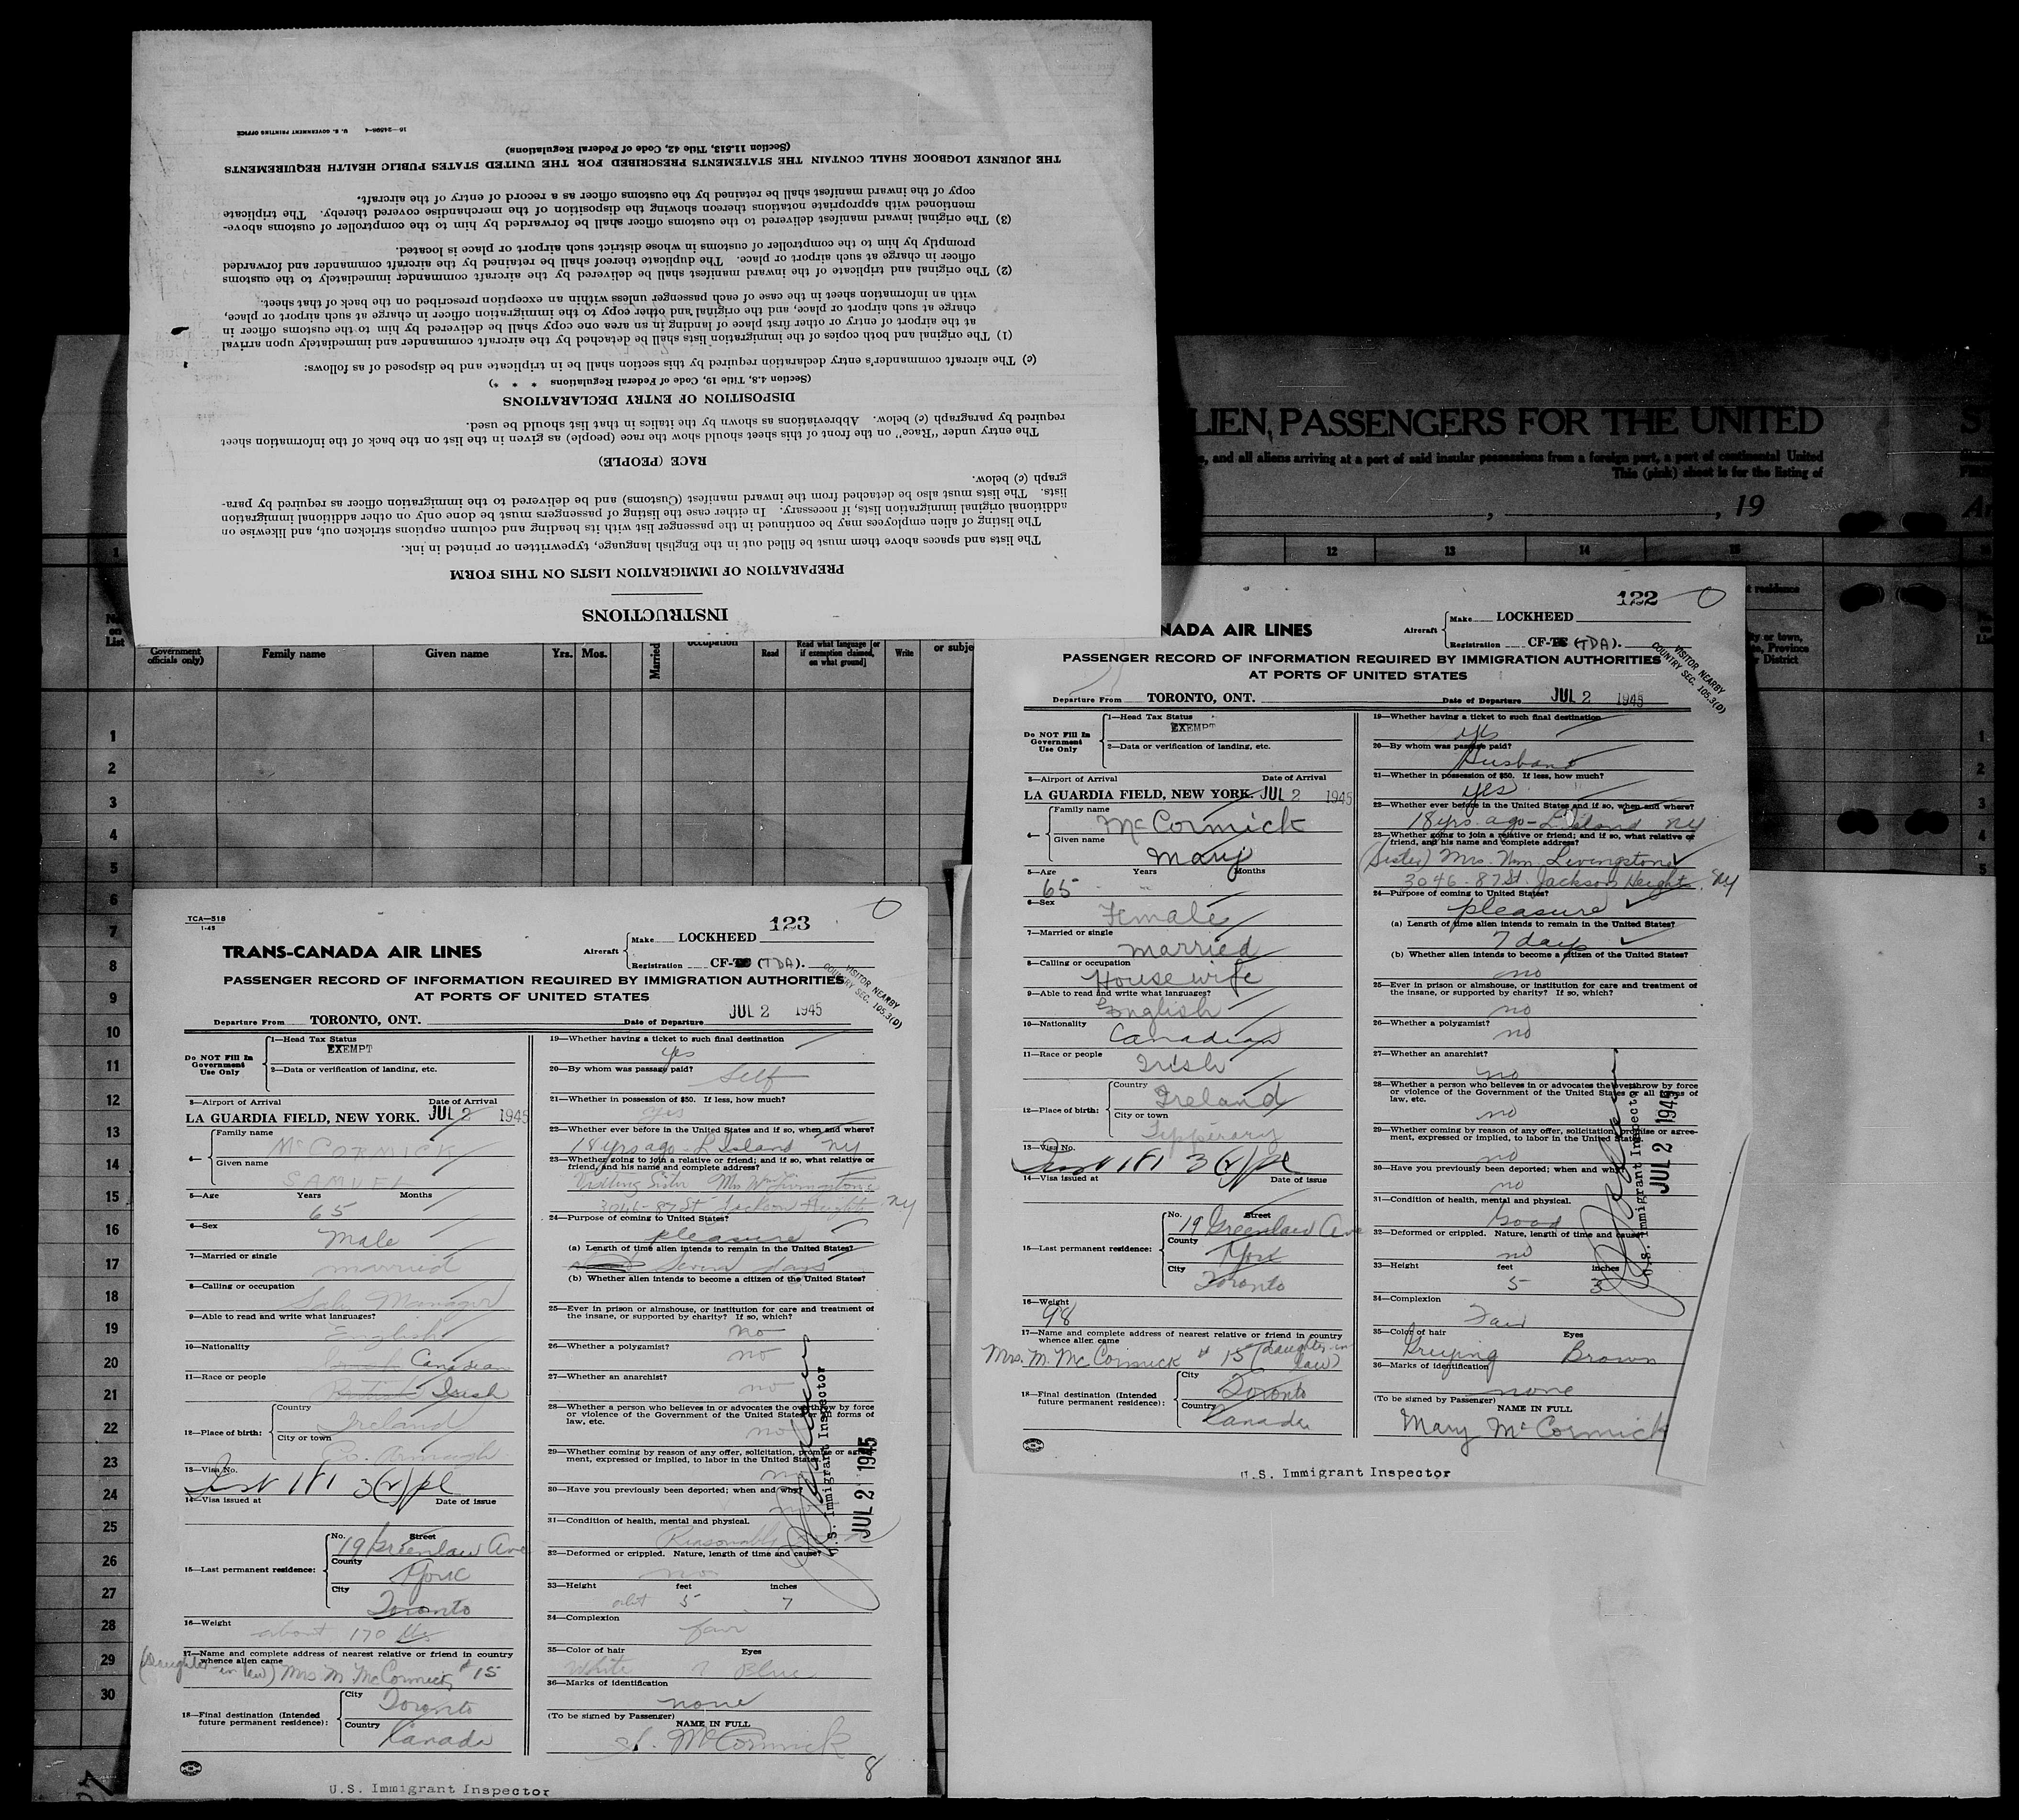 INSTRUCTIONS
PREPARATION OF IMMIGRATION LISTS ON THIS FORM
The lists and spaces above them must be filled out in the English language, typewritten or printed in ink.
The listing of alien employees may be continued in the passenger list with its heading and column captions stricken out, and likewise on
additional original immigration lists, if necessary. In either case the listing of passengers must be done only on other additional immigration
lists. The lists must also be detached from the inward manifest (Customs) and be delivered to the immigration officer as required by para-
graph (c) below.
RACE (PEOPLE)
The entry under "Race" on the front of this sheet should show the race (people) as given in the list on the back of the information sheet
required by paragraph (c) below. Abbreviations as shown by the italics in that list should be used.
DISPOSITION OF ENTRY DECLARATIONS
(Section 4.8, Title 19, Code of Federal Regulations * * *)
(c) The aircraft commander's entry declaration required by this section shall be in triplicate and be disposed of as follows:
(1) The original and both copies of the immigration lists shall be detached by the aircraft commander and immediately upon arrival
at the airport of entry or other first place of landing in an area one copy shall be delivered by him to the customs officer in
charge at such airport or place, and the original and other copy to the immigration officer in charge at such airport or place,
with an information sheet in the case of each passenger unless within an exception prescribed on the back of that sheet.
(2) The original and triplicate of the inward manifest shall be delivered by the aircraft commander immediately to the customs
officer in charge at such airport or place. The duplicate thereof shall be retained by the aircraft commander and forwarded
promptly by him to the comptroller of customs in whose district such airport or place is located.
(3) The original inward manifest delivered to the customs officer shall be forwarded by him to the comptroller of customs above-
mentioned with appropriate notations thereon showing the disposition of the merchandise covered thereby. The triplicate
copy of the inward manifest shall be retained by the customs officer as a record of entry of the aircraft.
THE JOURNEY LOGBOOK SHALL CONTAIN THE STATEMENTS PRESCRIBED FOR THE UNITED STATES PUBLIC HEALTH REQUIREMENTS
(Section 11.513, Title 42, Code of Federal Regulations)
16—24598-4 U. S. GOVERNMENT PRINTING OFFICE
LIEN PASSENGERS FOR THE UNITED
, and all aliens arriving at a port of said insular possessions from a foreign port, a port of continental United
This (pink) sheet is for the listing of
, 19
12 13 14 15
No. on List
Government officials only)
Family name
Given name
Yrs.
Mos.
Married
occupation
Read
Read what language [or if exemption claimed, on what ground]
Write
or subje
residence
ty or town,
Province
District
1
2
3
4
5
6
7
8
9
10
11
12
13
14
15
16
17
18
19
20
21
22
23
24
25
26
27
28
29
30
122
NADA AIR LINES
Aircraft
Make LOCKHEED
Registration CF- (TDA).
PASSENGER RECORD OF INFORMATION REQUIRED BY IMMIGRATION AUTHORITIES
AT PORTS OF UNITED STATES
VISITOR NEARBY
COUNTRY SEC. 105.3(D)
Departure From TORONTO, ONT.
Date of Departure JUL 2 1945
Do NOT Fill In Government Use Only
1—Head Tax Status
EXEMPT
2—Data or verification of landing, etc.
3—Airport of Arrival Date of Arrival
LA GUARDIA FIELD, NEW YORK. JUL 2 1945
4— Family name
McCormick
Given name
Mary
5—Age Years Months
65
6—Sex
Female
7—Married or single
married
8—Calling or occupation
Housewife
9—Able to read and write what languages?
English
10—Nationality
Canadian
11—Race or people
Irish
12—Place of birth:
Country
Ireland
City or town
Tipperary
13—Visa No.
181 3(2)
14—Visa issued at Date of issue
15—Last permanent residence:
No. Street
19 Greenlaw Ave
County
York
City
Toronto
16—Weight
98
17—Name and complete address of nearest relative or friend in country whence alien came
Mrs. M. McCormick # 15 (daughter-in law)
18—Final destination (Intended future permanent residence):
City
Toronto
Country
Canada
19—Whether having a ticket to such final destination
yes
20—By whom was passage paid?
Husband
21—Whether in possession of $50. If less, how much?
yes
22—Whether ever before in the United States and if so, when and where?
18 yrs. ago - L Island NY
23—Whether going to join a relative or friend; and if so, what relative or
friend, and his name and complete address?
(Sister) Mrs. Wm. Livingstone
3046-87 St. Jackson Height. NY
24—Purpose of coming to United States?
pleasure
(a) Length of time alien intends to remain in the United States?
7 days
(b) Whether alien intends to become a citizen of the United States?
no
25—Ever in prison or almshouse, or institution for care and treatment of
the insane, or supported by charity? If so, which?
no
26—Whether a polygamist?
no
27—Whether an anarchist?
no
28—Whether a person who believes in or advocates the overthrow by force
or violence of the Government of the United States or all forms of
law, etc.
no
29—Whether coming by reason of any offer, solicitation, promise or agree-
ment, expressed or implied, to labor in the United States.
no
30—Have you previously been deported; when and why?
no
31—Condition of health, mental and physical.
Good
32—Deformed or crippled. Nature, length of time and cause?
no
33—Height feet inches
5 3
34—Complexion
Fair
35—Color of hair Eyes
Greying Brown
36—Marks of identification
none
(To be signed by Passenger) NAME IN FULL
Mary McCormick
U.S. Immigrant Inspector
JUL 2 1945
U.S. Immigrant Inspector
TCA—518
1-45
123
TRANS-CANADA AIR LINES
Aircraft
Make LOCKHEED
Registration CF- (TDA).
PASSENGER RECORD OF INFORMATION REQUIRED BY IMMIGRATION AUTHORITIES
AT PORTS OF UNITED STATES
VISITOR NEARBY
COUNTRY SEC. 105.3(D)
Departure From TORONTO, ONT.
Date of Departure JUL 2 1945
Do NOT Fill In Government Use Only
1—Head Tax Status
EXEMPT
2—Data or verification of landing, etc.
3—Airport of Arrival Date of Arrival
LA GUARDIA FIELD, NEW YORK. JUL 2 1945
4— Family name
McCORMICK
Given name
SAMUEL
5—Age Years Months
65
6—Sex
Male
7—Married or single
married
8—Calling or occupation
Sales Manager
9—Able to read and write what languages?
English
10—Nationality
Canadian
11—Race or people
British Irish
12—Place of birth:
Country
Ireland
City or town
Co. Armagh
13—Visa No.
181 3(2)
14—Visa issued at Date of issue
15—Last permanent residence:
No. Street
19 Greenlaw Ave
County
York
City
Toronto
16—Weight
about 170 lbs
17—Name and complete address of nearest relative or friend in country
whence alien came
(Daughter-in law) Mrs. M. McCormick # 15
18—Final destination (Intended future permanent residence):
City
Toronto
Country
Canada
19—Whether having a ticket to such final destination
yes
20—By whom was passage paid?
Self
21—Whether in possession of $50. If less, how much?
yes
22—Whether ever before in the United States and if so, when and where?
18 yrs ago - L Island NY
23—Whether going to join a relative or friend; and if so, what relative or
friend, and his name and complete address?
Visiting Sister Mrs Wm Livingstone
3046-87 St Jackson Heights NY
24—Purpose of coming to United States?
pleasure
(a) Length of time alien intends to remain in the United States?
Seven days
(b) Whether alien intends to become a citizen of the United States?
25—Ever in prison or almshouse, or institution for care and treatment of
the insane, or supported by charity? If so, which?
no
26—Whether a polygamist?
no
27—Whether an anarchist?
no
28—Whether a person who believes in or advocates the overthrow by force
or violence of the Government of the United States or all forms of
law, etc.
no
29—Whether coming by reason of any offer, solicitation, promise or agree-
ment, expressed or implied, to labor in the United States.
no
30—Have you previously been deported; when and why?
no
31—Condition of health, mental and physical.
Reasonably
32—Deformed or crippled. Nature, length of time and cause?
no
33—Height feet inches
abt 5 7
34—Complexion
fair
35—Color of hair Eyes
White Blue
36—Marks of identification
none
(To be signed by Passenger) NAME IN FULL
S. McCormick
8
U.S. Immigrant Inspector
JUL 2 1945
U.S. Immigrant Inspector